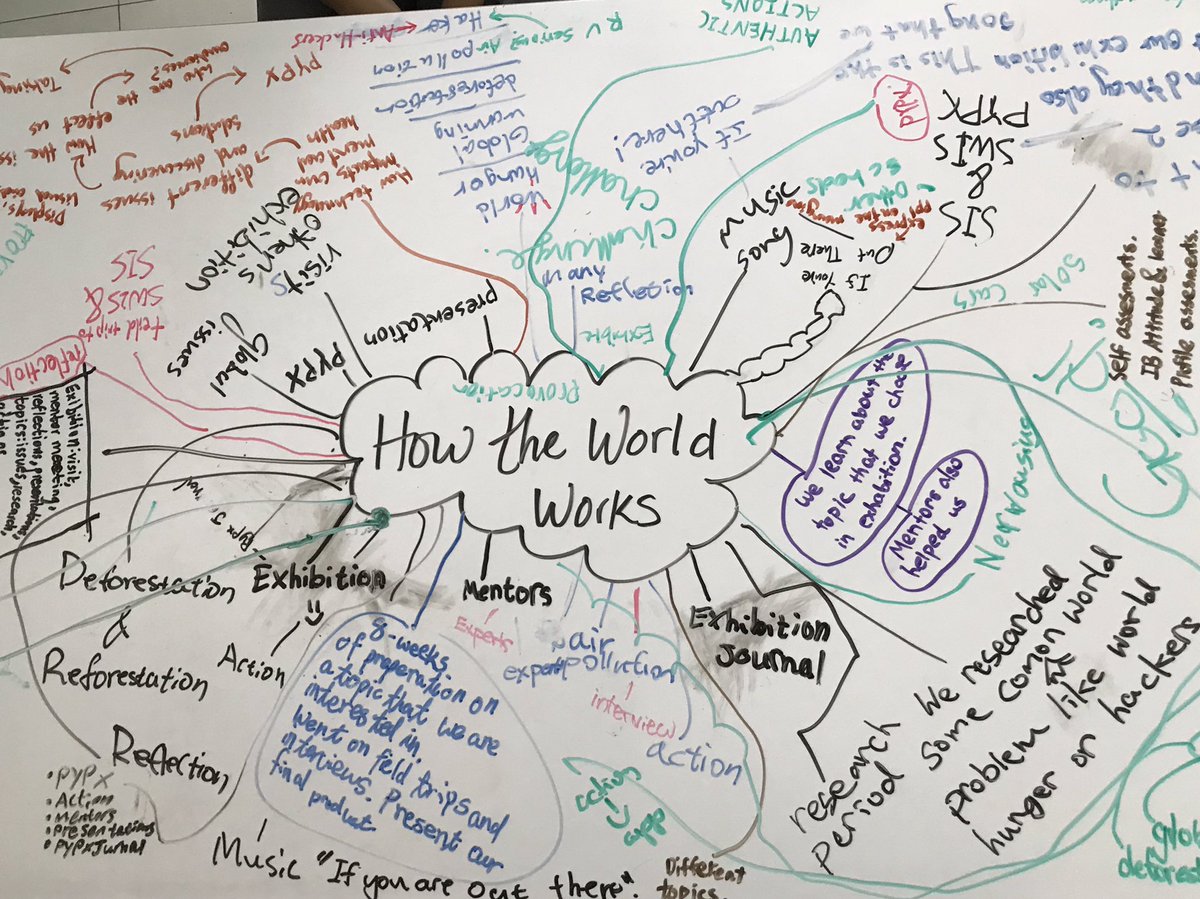 How the World
Works
PROVOCATION
Exhibition
Action
Mentors
Experts
Exhibition
Journal
Deforestation
&
Reforestation
Reflection
• PYPX
• Action
• Mentors
• Presentations
• PYPX Jurnal
8-weeks
of preperation on
a topic that we are
interested in.
Went on feild trips and
interviews. Present our
final product
Music "If you are out there".
Different
topics.
air
pollution
expert
interview
action
action
app
research
period
We researched
some comon world
problem like world
hunger or hackers
Nervousing
We learn about the
topic that we chose
in exhabition.
Mentors also
helped us
Self assesments.
IB Attitude & learner
Profile assesments.
Solar
Cars
SIS
&
SWIS
PYPX
PYPX
Other
schools
If You're
Out There
music
Reflection
Challenge
Challenge
If you're
out here!
AUTHENTIC
ACTIONS
World
Hungor
Global
warming
deforestation
Air pollution
Anti-Hackers
presentation
PYPX
Global
issues
visits
other's
exhibition
How technology
impacts our
mental
health
different issues
and discovering
solutions
How the
effect us
who are the
audiences?
PYPX
feild trip to
SWIS &
SIS
reflection
Exhibition: visit,
mentor meeting,
reflections, presentations,
topics: issues, research,
song that we
our exhibition This is the
and they also